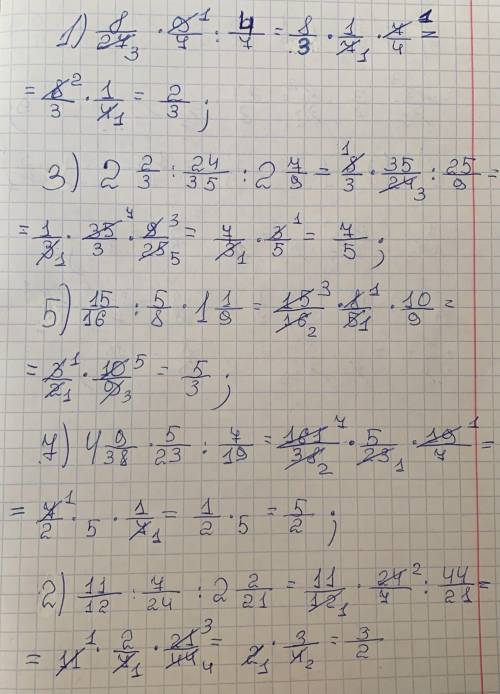 1) 8/27₃ · 9¹/7 : 4/7 = 8/3 · 1/7₁ · 7¹/4 =
= 8²/3 · 1/4₁ = 2/3 ;
3) 2 2/3 : 24/35 : 2 7/9 = ¹8/3 · 35/24₃ : 25/9 =
= 1/3₁ · 35⁷/3 · 9³/25₅ = 7/3₁ · 3¹/5 = 7/5 ;
5) 15/16 : 5/8 · 1 1/9 = 15³/16₂ · 8¹/5₁ · 10/9 =
= 3¹/2₁ · 10⁵/9₃ = 5/3 ;
7) 4 9/38 · 5/23 : 7/19 = 161⁷/38₂ · 5/23₁ · 19¹/7 =
= 7¹/2 · 5 · 1/7₁ = 1/2 · 5 = 5/2 ;
2) 11/12 : 7/24 : 2 2/21 = 11/12₁ · 24²/7 : 44/21 =
= 11¹ · 2/7₁ · 21³/44₄ = 2₁ · 3/4₂ = 3/2